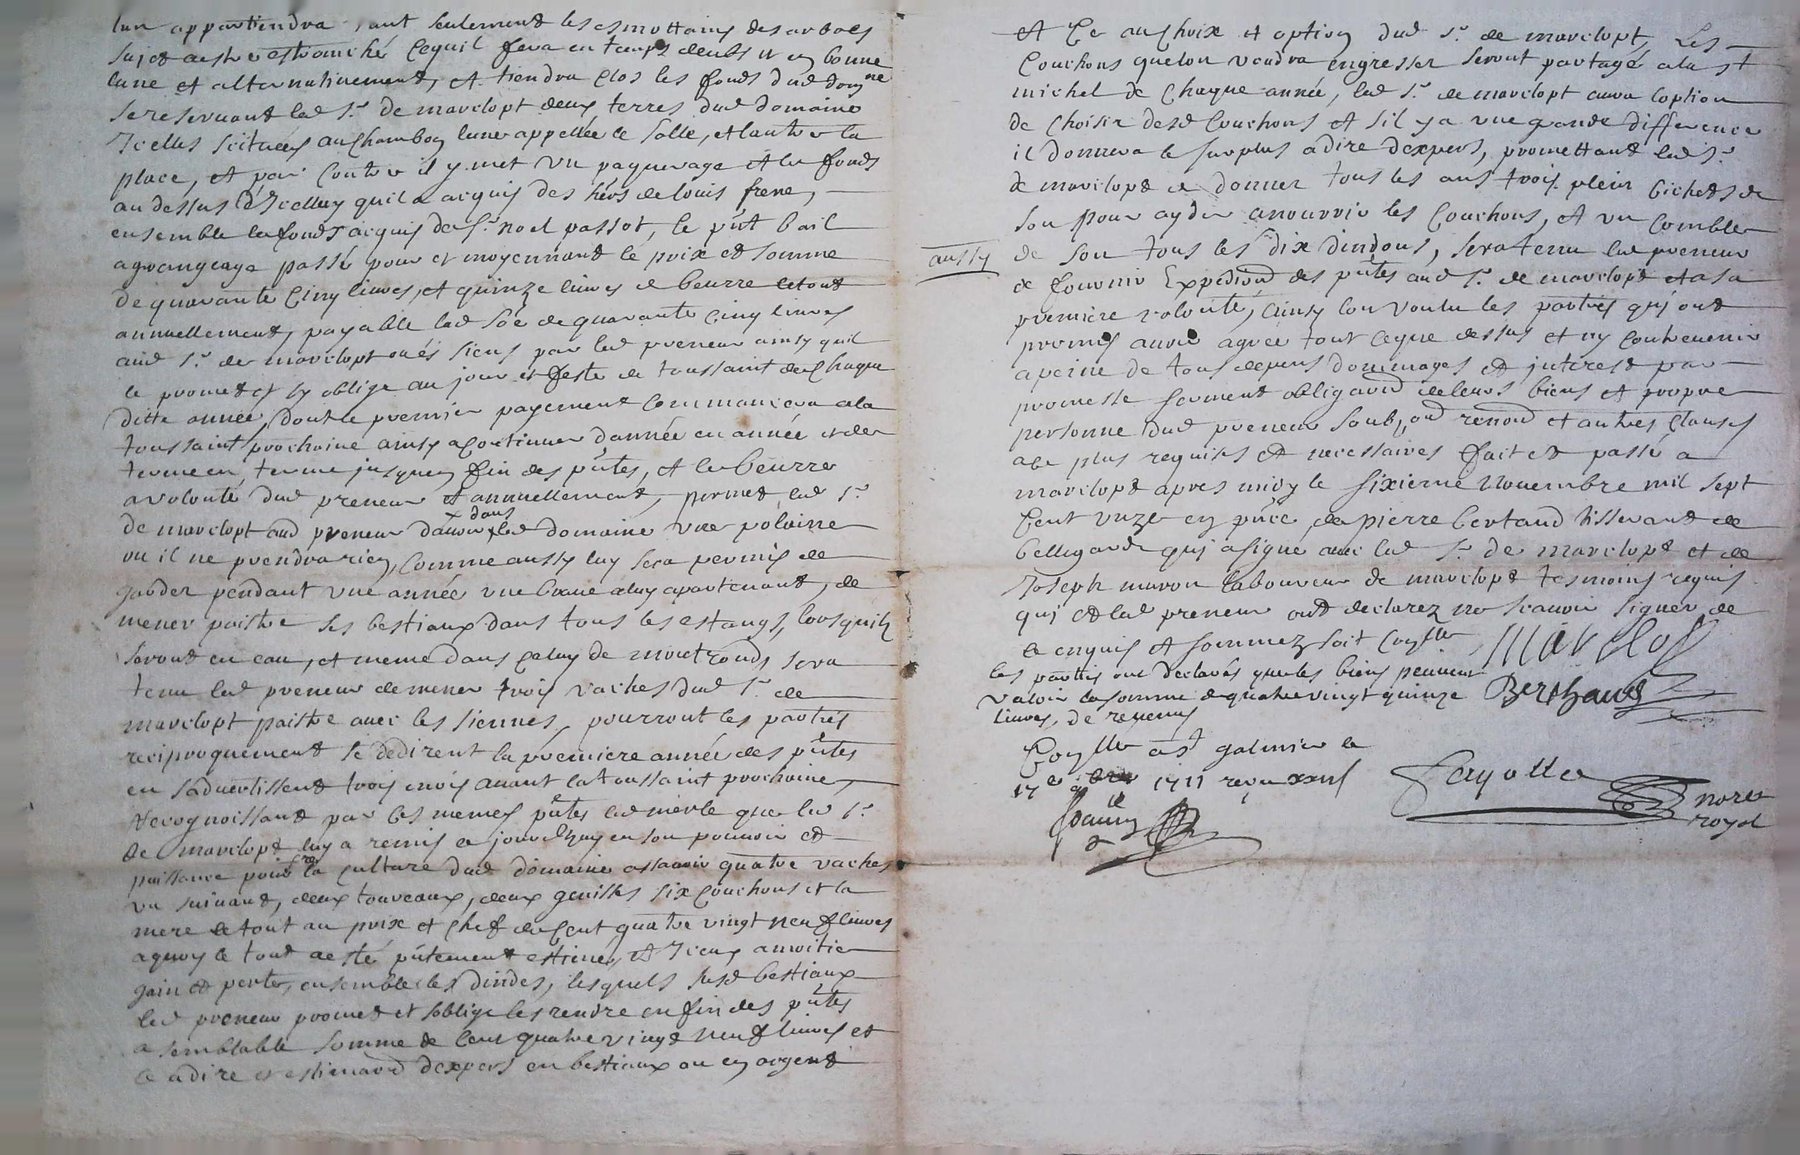 luy appartiendra, ant seulement les esmottains des arbres
sujet aestre estronché cequil fera en temps deubt et en bonne
lune et alternatiuement, et tiendra clos les fonds dud domne
se reseruant led sr de marclopt deux terres dud domaine
Icelles scituées au Chambon lune appellée le Solle, et lautre la
place, et par contre il y met un paquerage et les fonds
au dessus d'Icelluy quil a acquis des hérs de louis frene,
ensemble les fonds acquis de sr noel passot, le pñt bail
agrangeage passé pour et moyennant le prix et somme
de quarante cinq liures, et quinze liures de beurre letout
annuellement, payable lad sôe de quarante cinq liures
aud sr de marclopt oués siens par led preneur ainsy quil
le promet et sy oblige au jour et feste de toussaint de chaque
ditte année, dont le premier payement commancera ala
toussaint prochaine ainsy a continuer d'année en année et de
terme en terme jusques fin des pñtes, et le beurre
a volonté dud preneur et annuellement, permet led sr
de marclopt aud preneur dauoir dans led domaine une
ou il ne prendra rien, comme aussy luy sera permis de
garder pendant une année une caualle a luy apartenant, de
mener paistre ses bestiaux dans tous les estangs, lorsquils
seront en eau, et meme dans celuy de montrond, sera
tenu led preneur de mener trois vaches dud sr de
marclopt paistre auec les siennes, pourront les parties
reciproquement se dédirent la premiere année des pñtes
en saduertissent trois mois auant la toussaint prochaine,
Recognoissant par les memes pñtes led merle que led sr
de marclopt luy a remis ce jourdhuy en son pouuoir et
puissance pour la culture dud domaine assauoir quatre vaches
un suiuant, deux toureaux, deux genisses six couchons et la
mere le tout au prix et chef de cent quatre vingt neuf liures
aquoy le tout a esté pñtement estimé, et Iceux a moitié
gain et perte, ensemble les dindes, lesquels susd bestiaux
led preneur promet et soblige les rendre en fin des pñtes
a semblable somme de cent quatre vingt neuf liures et
ce a dire et estimaõn dexpers en bestiaux ou en argent
et ce au choix et option dud sr de marclopt, Les
Couchons quelon voudra engresser seront partagé ala st
michel de chaque année, led sr de marclopt aura loption
de choisir desd couchons et sil y a une grande difference
il donnera le surplus a dire dexpers, promettant led sr
de marclopt de donner tous les ans trois plein bichets de
son pour ayder a nourrir les couchons, et un comble
de son tous les dix dindons, sera tenu led preneur
aussy
de fournir Expediõn des pñtes aud sr de marclopt et a sa
premiere volonté, ainsy lon voulu les parties qui ont
promis auoir agreé tout ceque dessus et ny contreuenir
a peine de tous depens dommages et interest par
promesse serment obligaõn de leurs biens et propre
personne dud preneur soub, on renond et autres clauses
ace plus requises et necessaires fait et passé a
marclopt apres midy le sixieme Nouembre mil sept
cent unze en pñce de pierre bertaud tisserand de
bellegarde qui a signé auec led sr de marclopt et de
Joseph muron laboureur de marclopt tesmoins requis
qui et led preneur ont declarez ne scauoir signer de
ce enquis et sommez soit Conllé
les parties ont declarés queles biens peuuent
valoir la somme de quatre vingt quinze
liures de reuenus
Marclop
Berthaud
Conllé a st galmier le
17e 9bre 1711 reçu xxiiis
Fayolle
nore
royal